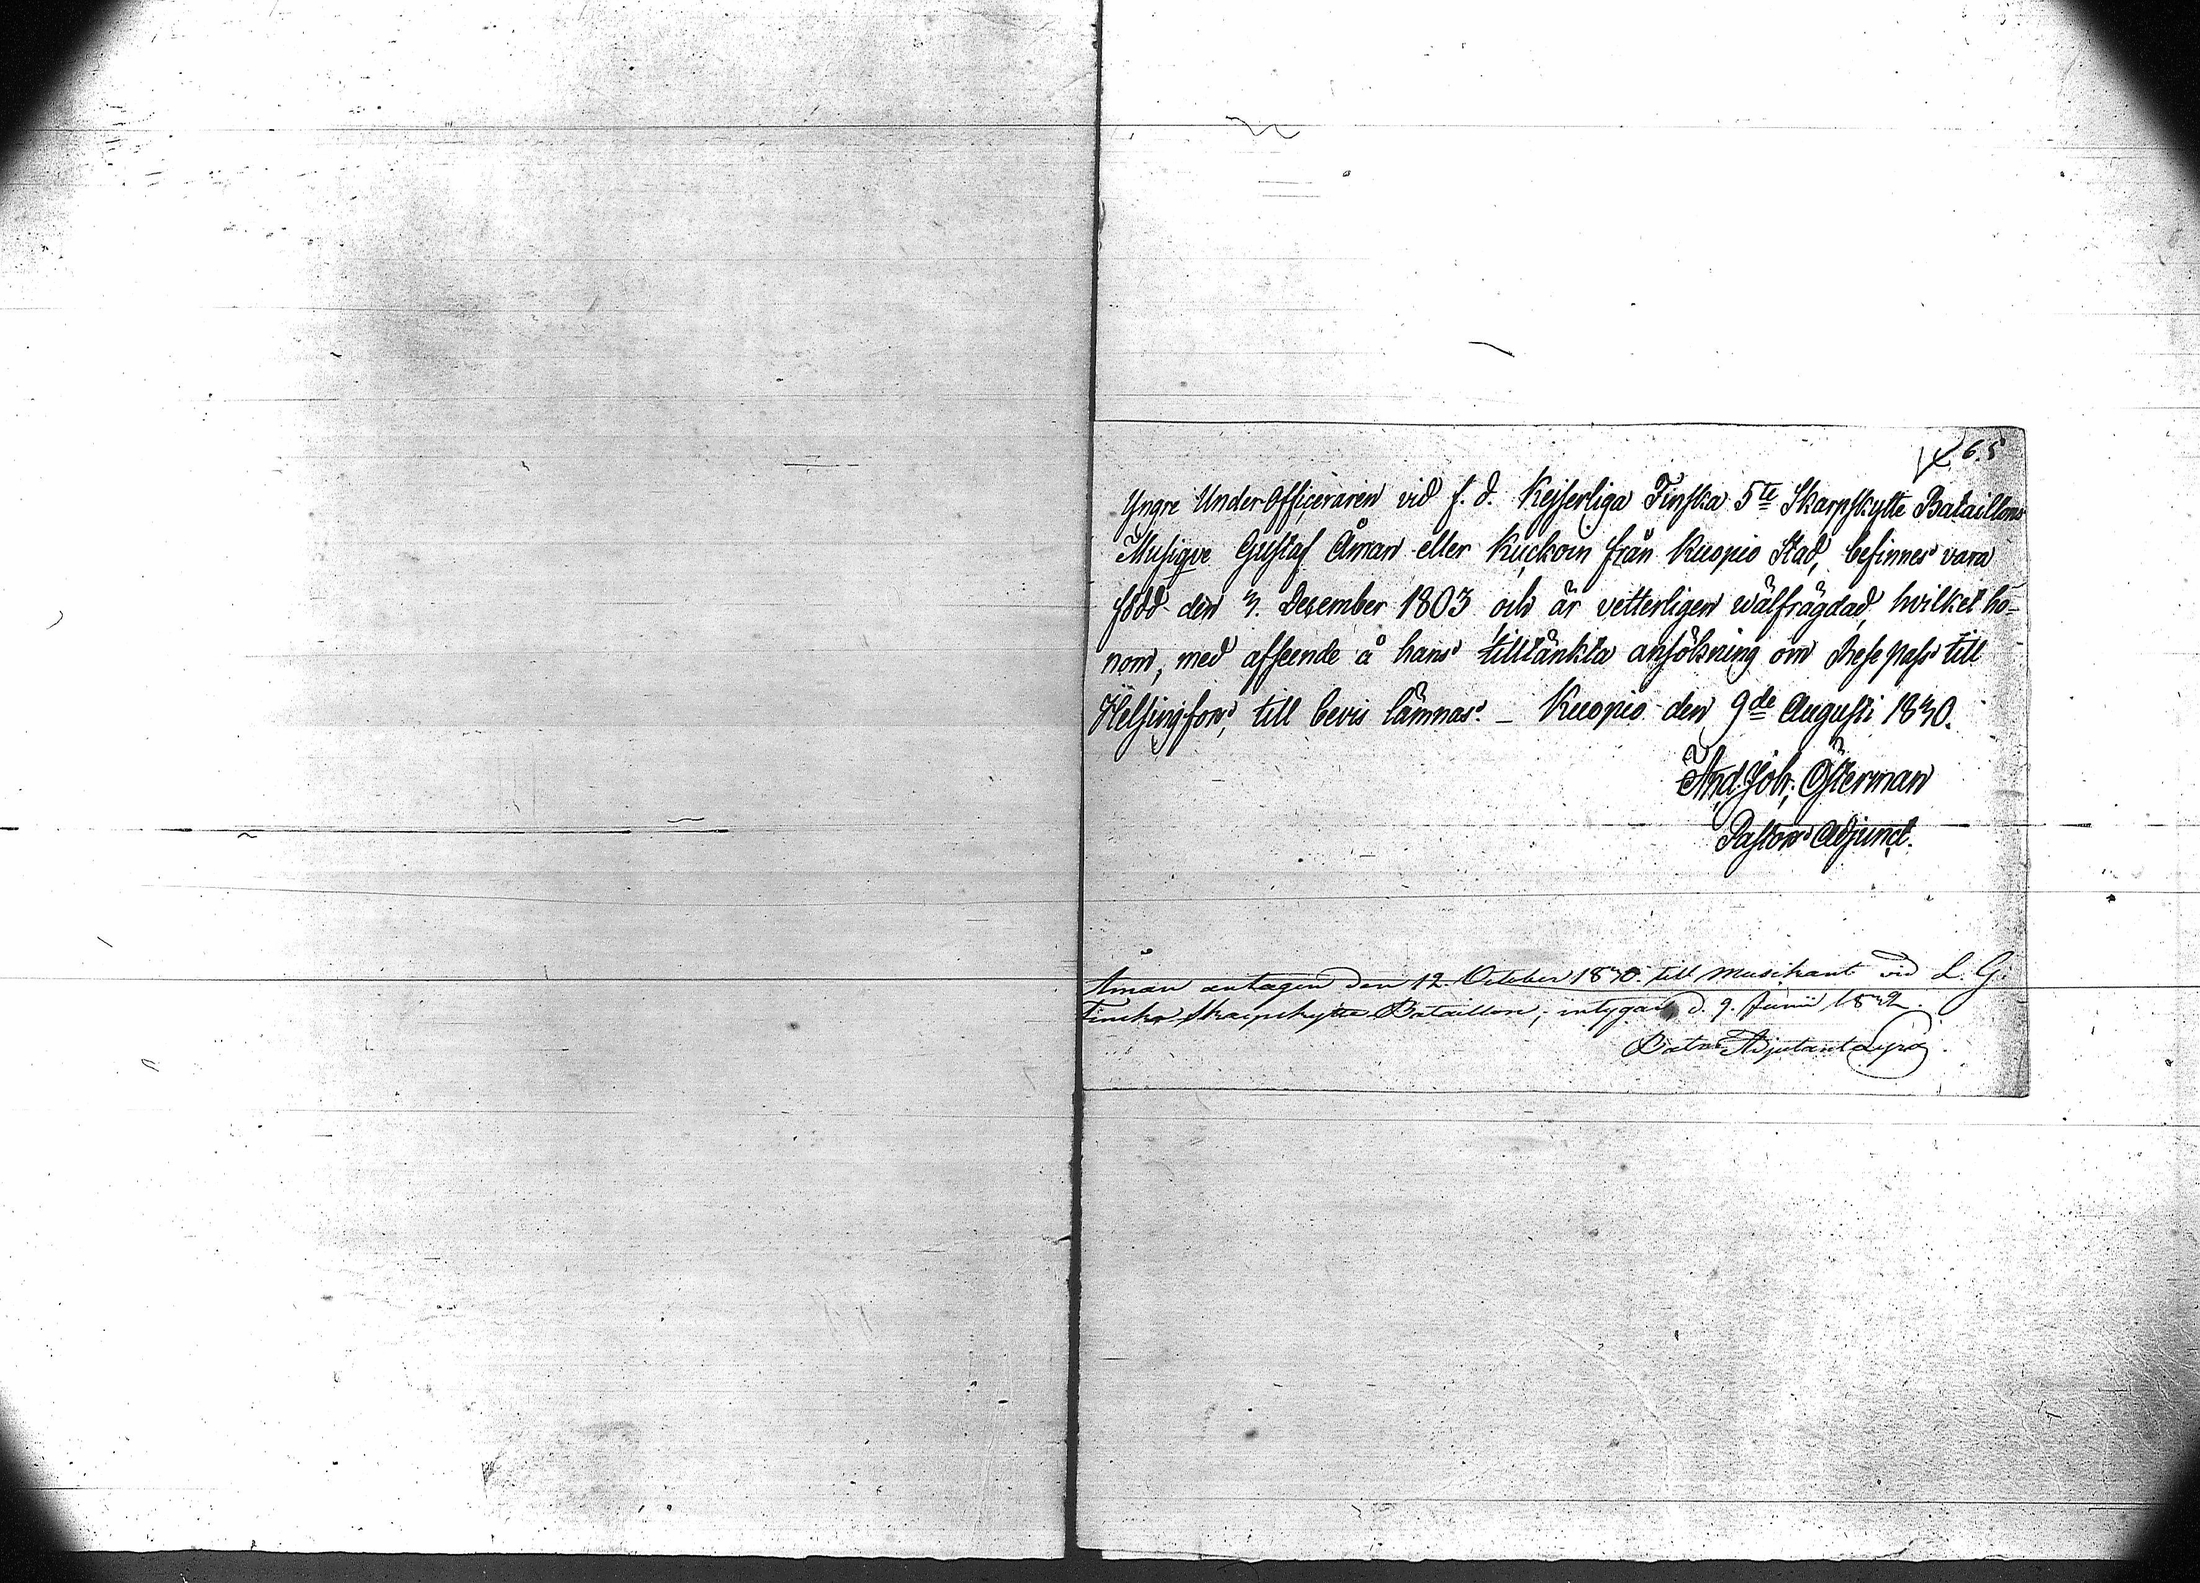 65
Yngre Under-Officeraren vid f. d. Kejserliga Finska 5te Skarpskytte Bataillons
Musique Gustaf Åman eller Kuckoin från Kuopio Stad, befinnes vara
född den 3. December 1803 och är vetterligen wälfrägdad, hvilket ho-
nom, med afseende å hans tilltänkta ansökning om Resepass till
Helsingfors, till bevis lämnas. _ Kuopio den 9de Augusti 1830.
And. Joh. Österman
Pastors Adjunct.
Åman antagen den 12. October 1830. till Musikant vid L. G.
Finska Skarpskytte Bataillon; intygar d. 9. Junii 1832.
Batns Adjutant